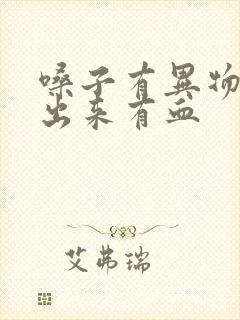 嗓子有異物
出来有血
艾弗瑞